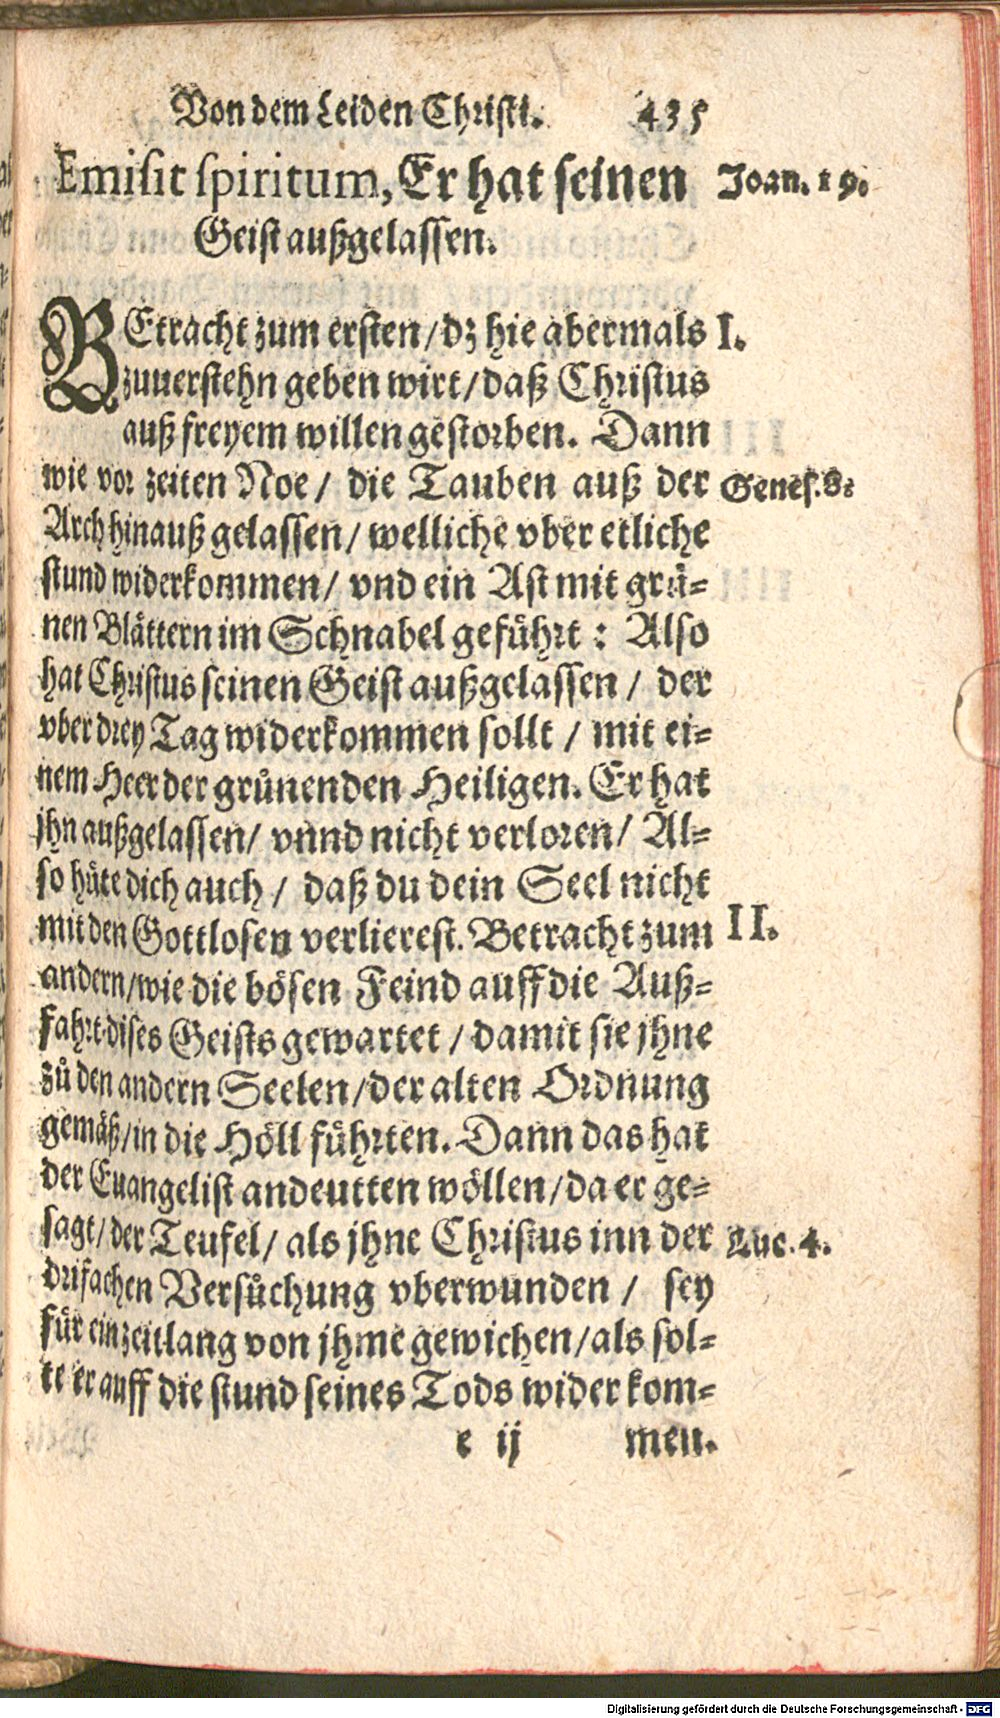 Von dem Leiden Christi. 435
Emisit spiritum, Er hat seinen Joan. 19.
Geist außgelassen.
BEtracht zum ersten / dz hie abermals I.
zuuerstehn geben wirt / daß Christus
auß freyem willen gestorben. Dann
wie vor zeiten Noe / die Tauben auß der Genes. 8.
Arch hinauß gelassen / welliche vber etliche
stund widerkommen / vnd ein Ast mit grü⸗
nen Blättern im Schnabel gefůhrt : Also
hat Christus seinen Geist außgelassen / der
vber drey Tag widerkommen sollt / mit ei⸗
nem Heer der grůnenden Heiligen. Er hat
jhn außgelassen / vnnd nicht verloren / Al⸗
so hůte dich auch / daß du dein Seel nicht
mit den Gottlosen verlierest. Betracht zum II.
andern / wie die bösen Feind auff die Auß⸗
fahrt dises Geists gewartet / damit sie jhne
zů den andern Seelen / der alten Ordnung
gemäß / in die Höll fůhrten. Dann das hat
der Euangelist andeutten wöllen / da er ge⸗
sagt / der Teufel / als jhne Christus inn der Luc. 4.
drifachen Versůchung vberwunden / sey
fůr ein zeitlang von jhme gewichen / als sol⸗
te er auff die stund seines Tods widerkom⸗
e ij men.
Digitalisierung gefördert durch die Deutsche Forschungsgemeinschaft - DFG